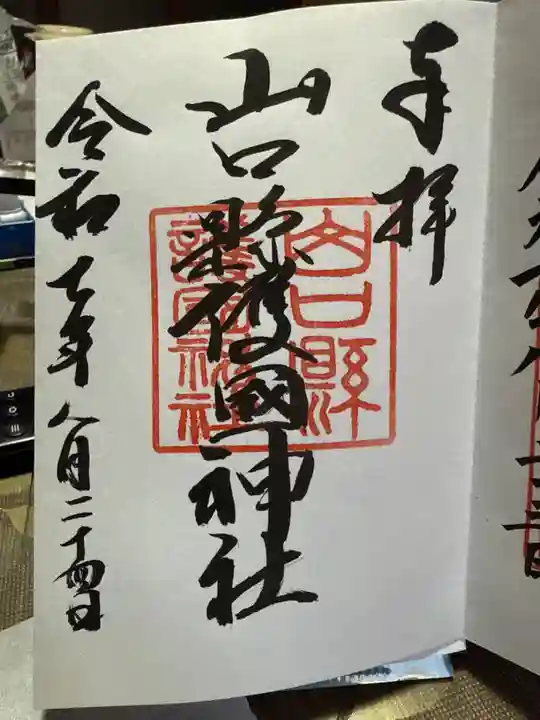 奉拝
山口縣護國神社
山口縣
護國神社
令和七年八月二十四日